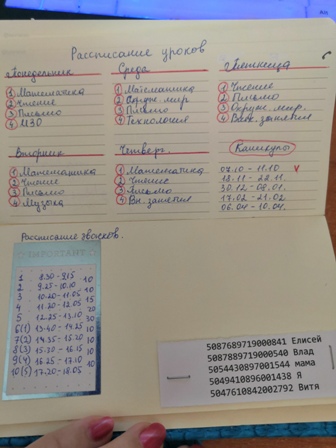 Рассписание уроков
Понедельник
1 Математика
2 Чтение
3 Письмо
4 ИЗО
Среда
1 Математика
2 Окруж. мир
3 Письмо
4 Технология
Пятница
1 Чтение
2 Письмо
3 Окруж. мир.
4 Внек. занятия
Вторник
1 Математика
2 Чтение
3 Письмо
4 Музыка
Четверг.
1 Математика
2 Чтение
3 Письмо
4 Вн. занятия
Каникулы
07.10 - 11.10 v
18.11 - 22.11
30.12 - 08.01.
17.02 - 21.02
06.04 - 10.04.
Рассписание звонков.
IMPORTANT
1 8.30 - 9.15 10
2 9.25 - 10.10 10
3 10.20 - 11.05 15
4 11.20 - 12.05 20
5 12.25 - 13.10 30
6 (1) 13.40 - 14.25 10
7 (2) 14.35 - 15.20 10
8 (3) 15.30 - 16.15 10
9 (4) 16.25 - 17.10 10
10 (5) 17.20 - 18.05
5087689719000841 Елисей
5087889719000540 Влад
5054430897001544 мама
5049410896001438 Я
5047610842002792 Витя